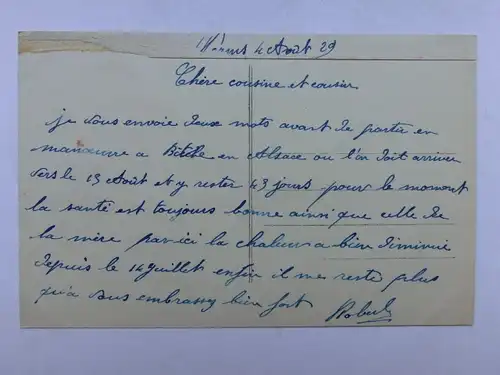 4 Août 29
Chère cousine et cousin
je vous envoie deux mots avant de partir en
manœuvre a Bitche en Alsace ou l'on doit arriver
vers le 13 Août et y rester 43 jours pour le moment
la santé est toujours bonne ainsi que celle de
la mère par ici la chaleur a bien diminué
depuis le 14 juillet enfin il me reste plus
qu'a vous embrassez bien fort
Robert